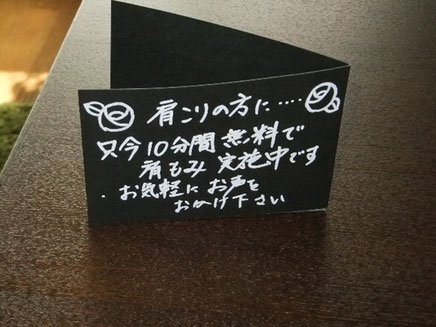 肩こりの方に‥‥
只今10分間無料で
肩もみ実施中です
・お気軽にお声を
おかけ下さい